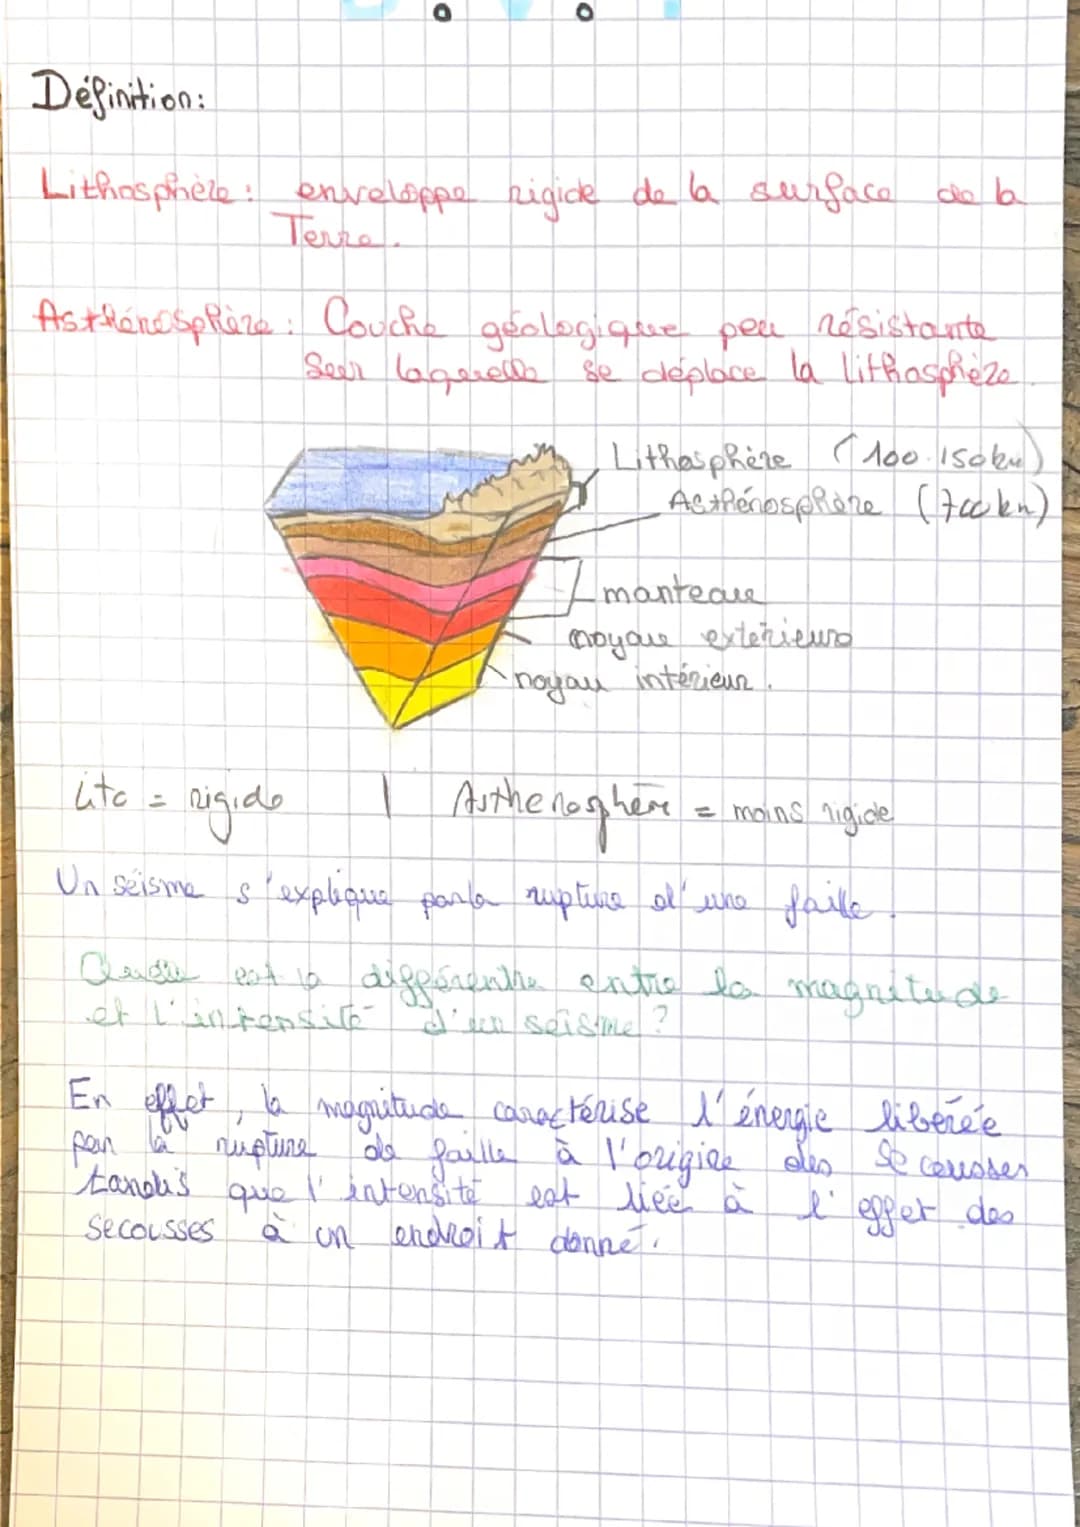 Définition:
Lithosphère : enveloppe rigide de la surface de la
Terre.
Asthénosphère : Couche géologique peu résistante
Sur laquelle se déplace la lithosphère.
Lithosphère (100.150km)
Asthénosphère (700km)
manteau
noyau exterieurs
noyau intérieur.
Lito = rigide | Asthenosphère = moins rigide
Un séisme s'explique par la rupture d'une faille.
Quelle est la différenthe entre la magnitude
et l'intensité d'un seisme ?
En effet, la magnitude caractérise l'énergie libérée
par la rupture de faille à l'origine des Secousses
tandis que l'intensité est liée à l'effet des
secousses à un endroit donné.